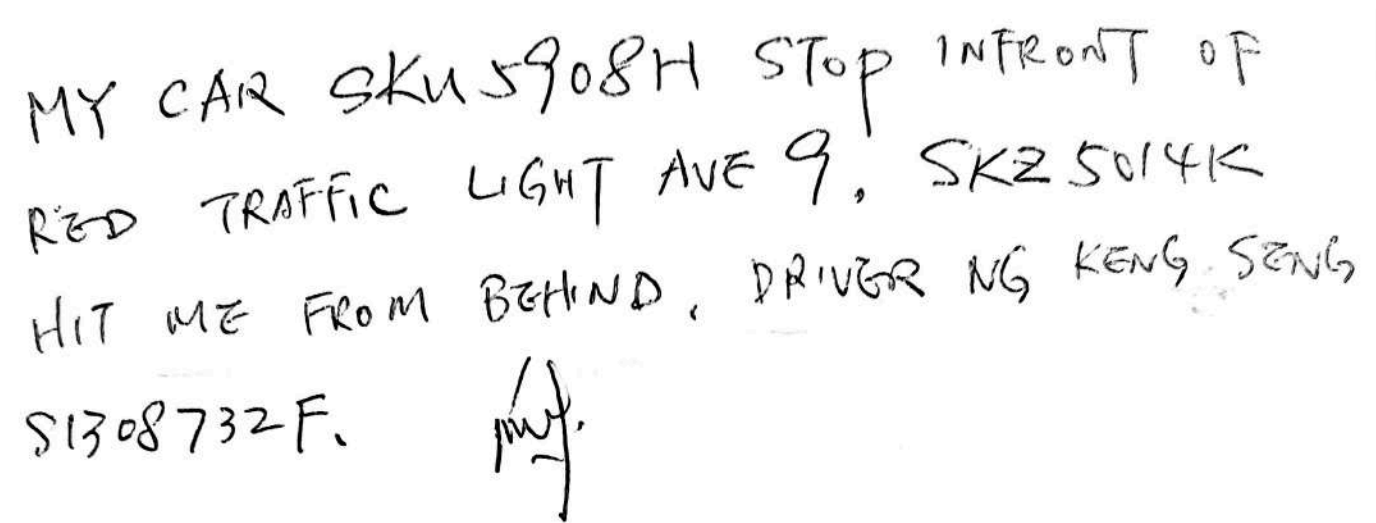 MY CAR SKU5908H STOP INFRONT OF
RED TRAFFIC LIGHT AVE 9, SKZ5014K
HIT ME FROM BEHIND, DRIVER NG KENG SENG
S1308732F.